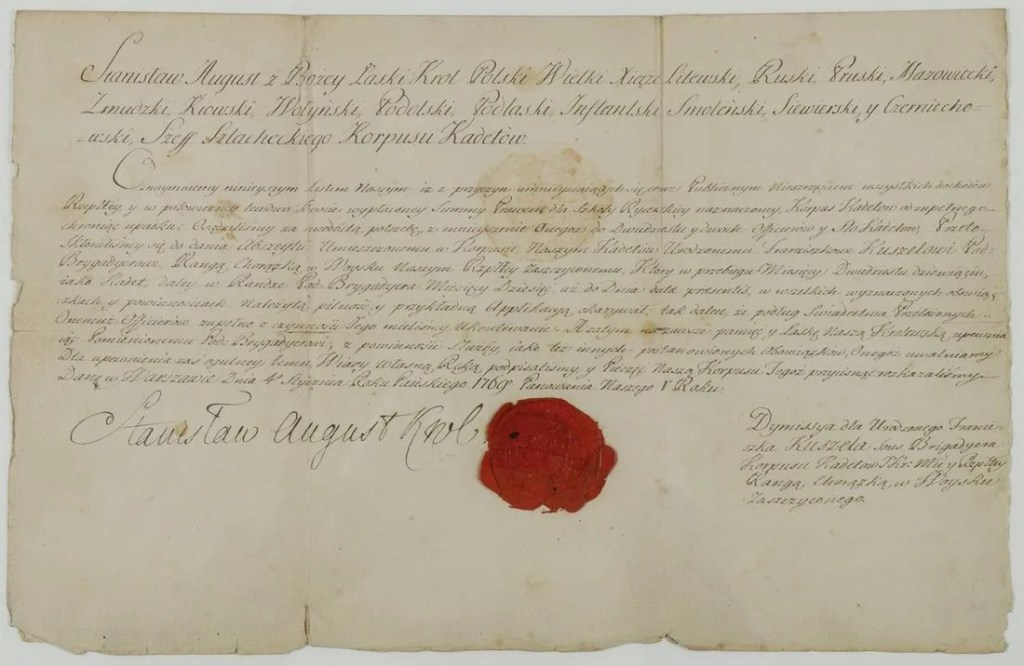 Stanisław August z Bożey Łaski Krol Polski Wielki Xiąże Litewski, Ruski, Pruski, Mazowiecki,
Zmudzki, Kiowski, Wołyński, Podolski, Podlaski, Inflantski, Smoleński, Siewierski, y Czerniecho-
-wski, Szeff Szlacheckiego Korpusu Kadetów.
Oznaymuiemy ninieyszym Listem Naszym iż z przyczyn umnieyszaiących się, oraz Publicznym Nieszczęściem wszystkich dochodów
Rzpltey, y w połowiczney ledwo kwocie wypłaconey Summy Prawem dla Szkoły Rycerskiey naznaczoney, Korpus Kadetów od zupełnego
chroniąc upadku, Osądziliśmy za rzecz potrzebną, z mnieyszenie Onegoż do Dwudziestu y dwóch Officerów y Sto Kadetów, Przeto
Skłoniliśmy się do dania Abszeytu Umieszczonemu w Korpusie Naszym Kadetów Urodzonemu Franciszkowi Kuszelowi Pod-
Brygadyerowi, Rangą Chorążką w Woysku Naszym Rzpltey zaszczyconemu, Który w przebiegu Miesięcy Dwudziestu dziewiąciu,
iako Kadet, daley w Randze Pod-Brygadyera Miesięcy Dziesięć, aż do Dnia datæ præsentis, w wszelkich wyznaczonych obowiąz-
-zkach, y powinnościach, należytą pilność, y przykładną Applikacyą okazywał, tak dalece, że podług Świadectwa Przełożonych
Onemuż Officierów zupełne z czynności Jego mieliśmy Ukontentowanie. A zatym na zawsze pamięć y Łaskę Naszą Krolewską upewnia-
iąc Pomienionemu Pod-Brygadyerowi, z powinności Służby, iako też innych postanowionych obowiązków, Onegoż uwalniamy.
Dla upewnienia zaś ogulney temu Wiary własną Ręką podpisaliśmy, y Pieczęć Naszą Korpusu Tegoż przycisnąć rozkazaliśmy.
Dano w Warszawie Dnia 4° Stycznia Roku Pańskiego 1769 Panowania Naszego V Roku.
Stanisław August Krol
Dymissya dla Urodzonego Franci-
szka Kuszela Sous Brigadyera
Korpusu Kadetów JKr: Mći y Rzpltey
Rangą Chorążką w Woysku
Zaszczyconego.